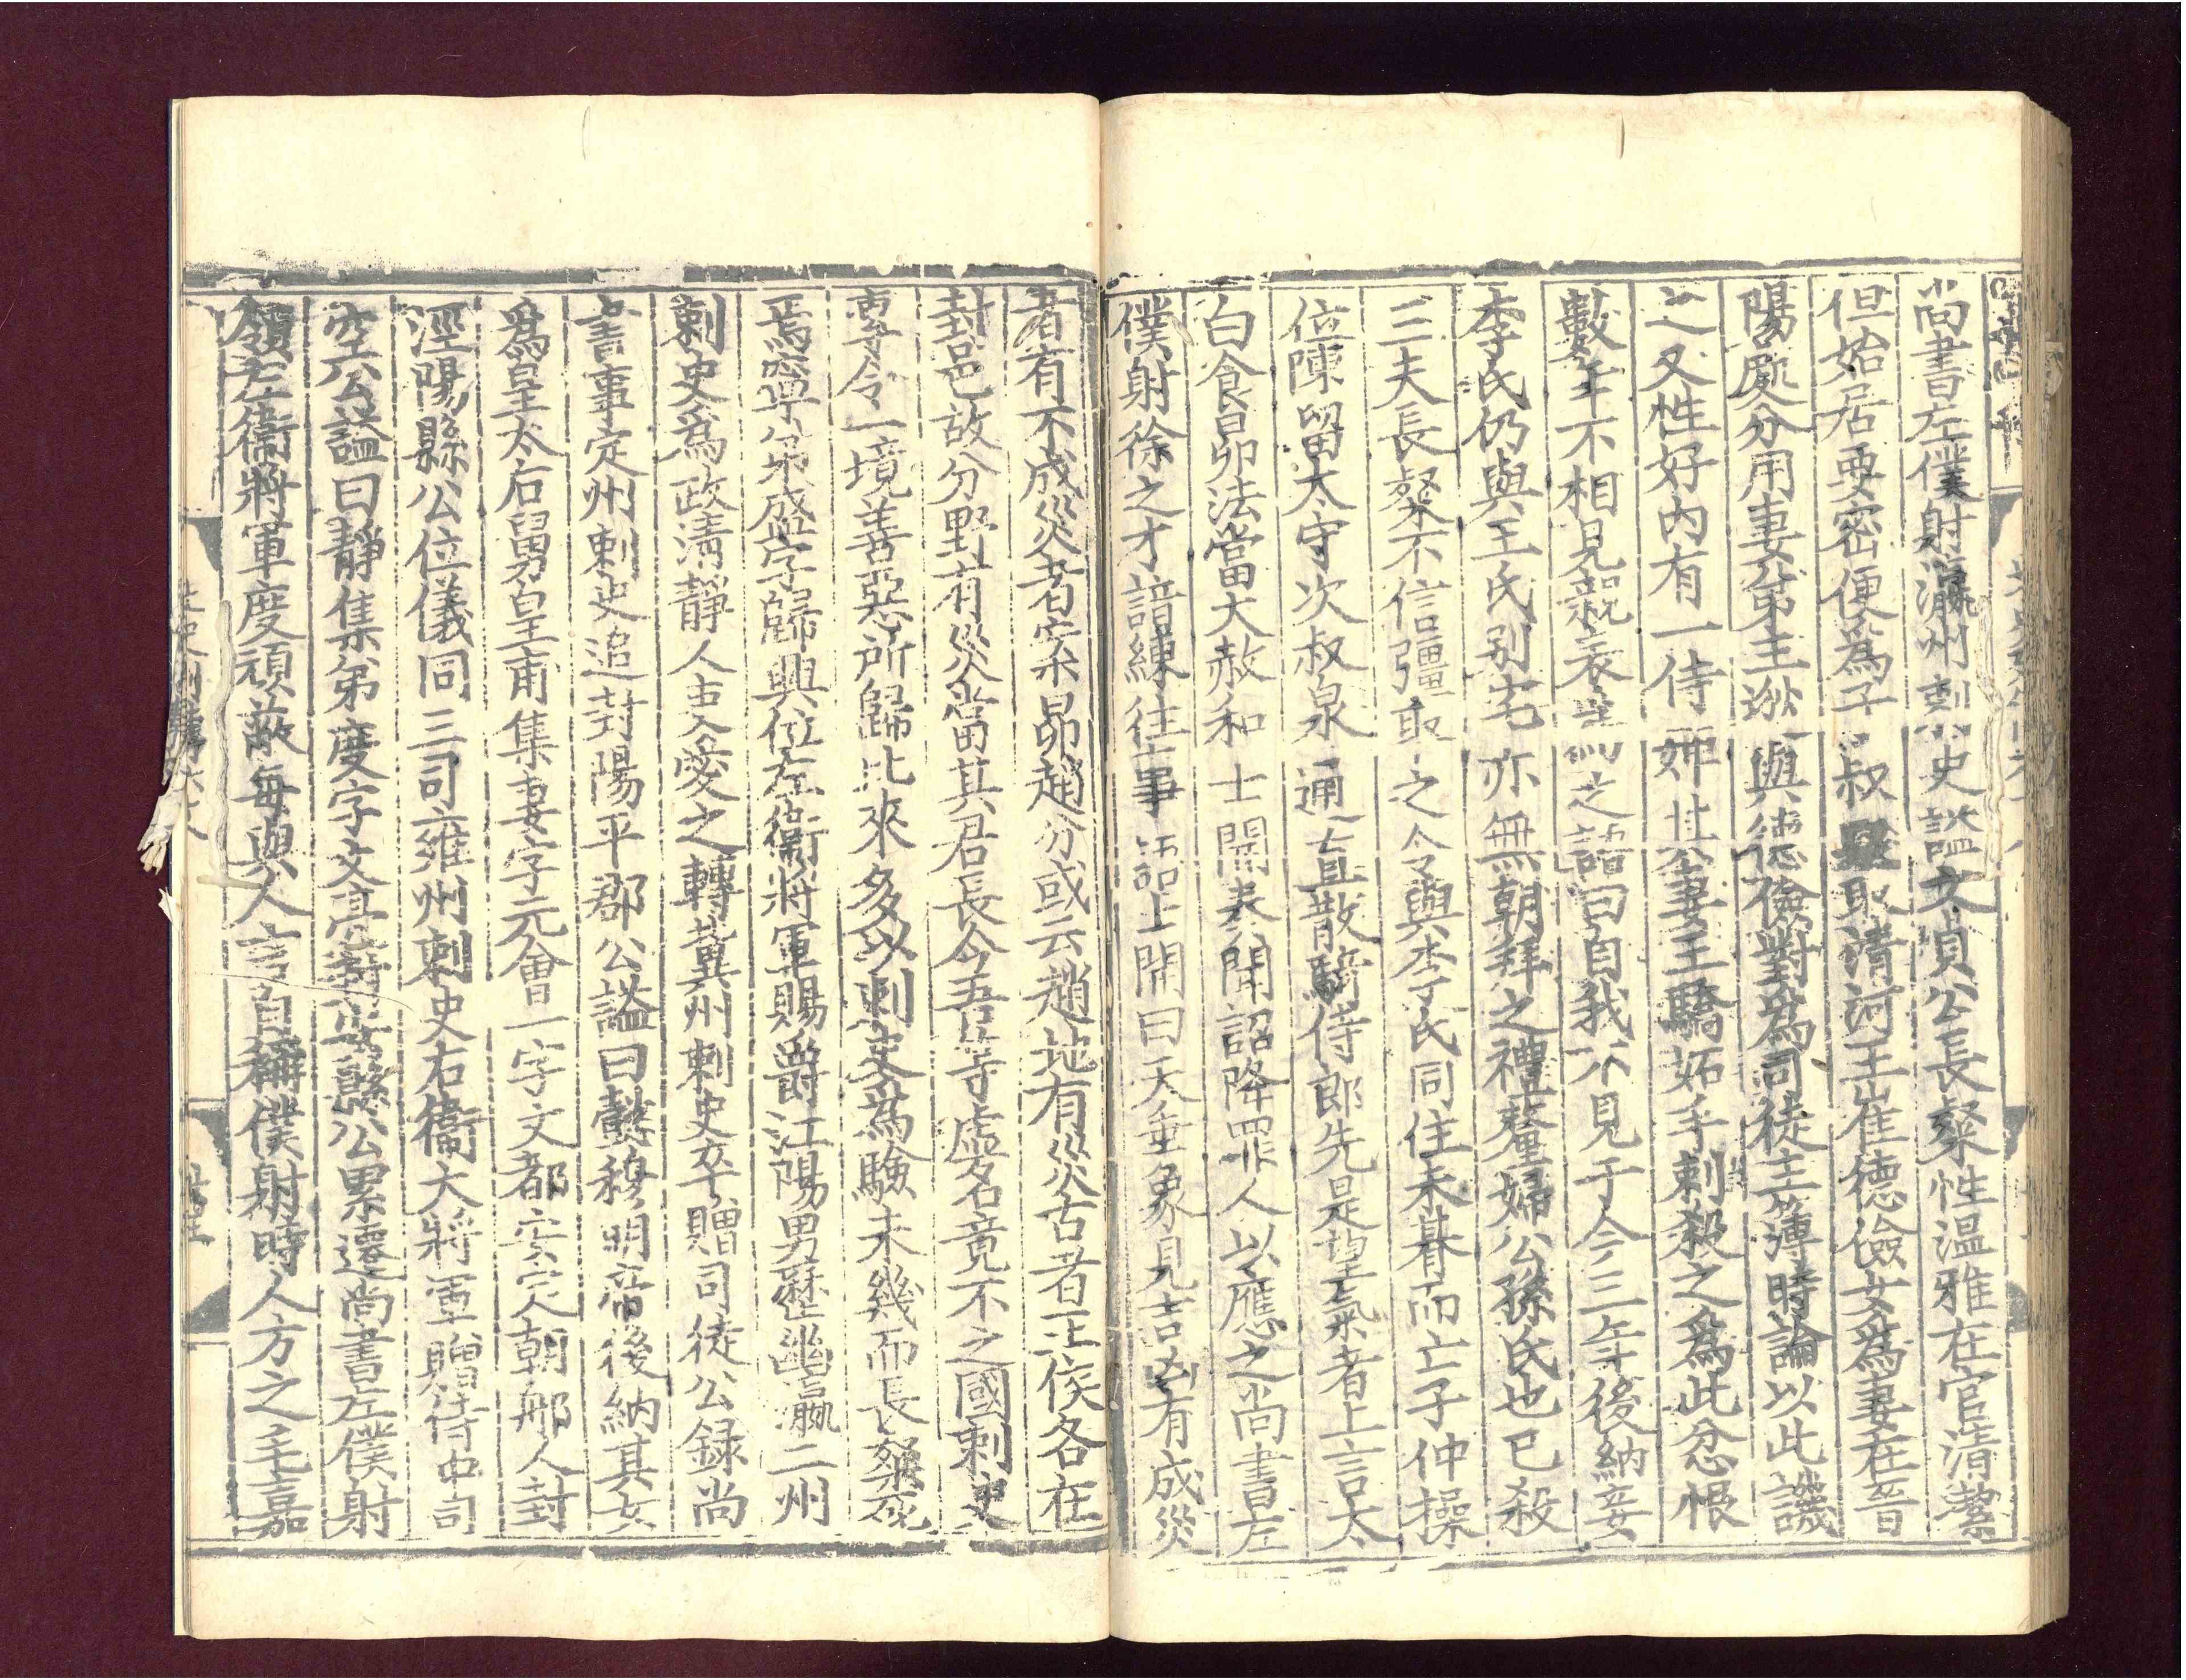 尚書左僕射瀛州刺史謚文貞公長粲性溫雅在官清潔
但始居要密便爲子叔取清河王崔德儉女爲妻在晉
陽處分用妻弟主逖與德儉對爲司徒主簿時論以此譏
之又性好内有一侍婢其妻王驕妬手刺殺之爲此忿恨
數年不相見親表之詰曰自我不見于今三年後納妾
李氏仍與王氏别宅亦無朝拜之禮釐婦公孫氏也已殺
三夫長粲不信彊取之令與李氏同住未朞而亡子仲操
位陳留太守次叔泉通直散騎侍郎先是望氣者上言太
白食昴法當大赦和士開表聞詔降罪人以應之尚書左
僕射徐之才諳練往事語士開曰天垂象見吉凶有成災
者有不成災者案昴趙分或云趙地有災古者王侯各在
封邑故分野有災當其君長今吾等虛名竟不之國刺史
專令一境善惡所歸比來多以刺史爲驗未幾而長粲死
焉寧弟盛字歸興位左衛將軍賜爵江陽男歷幽瀛二州
刺史爲政清靜人吏愛之轉冀州刺史卒贈司徒公録尚
書事定州刺史追封陽平郡公謚曰懿穆明帝後納其女
爲皇太后舅皇甫集妻字元會一字文都安定朝那人封
涇陽縣公位儀同三司雍州刺史右衞大將軍贈侍中司
空公謚曰靜集弟度字文亭封安縣公累遷尚書左僕射
領左衛將軍度頑蔽每與人言自稱僕射時人方之毛嘉